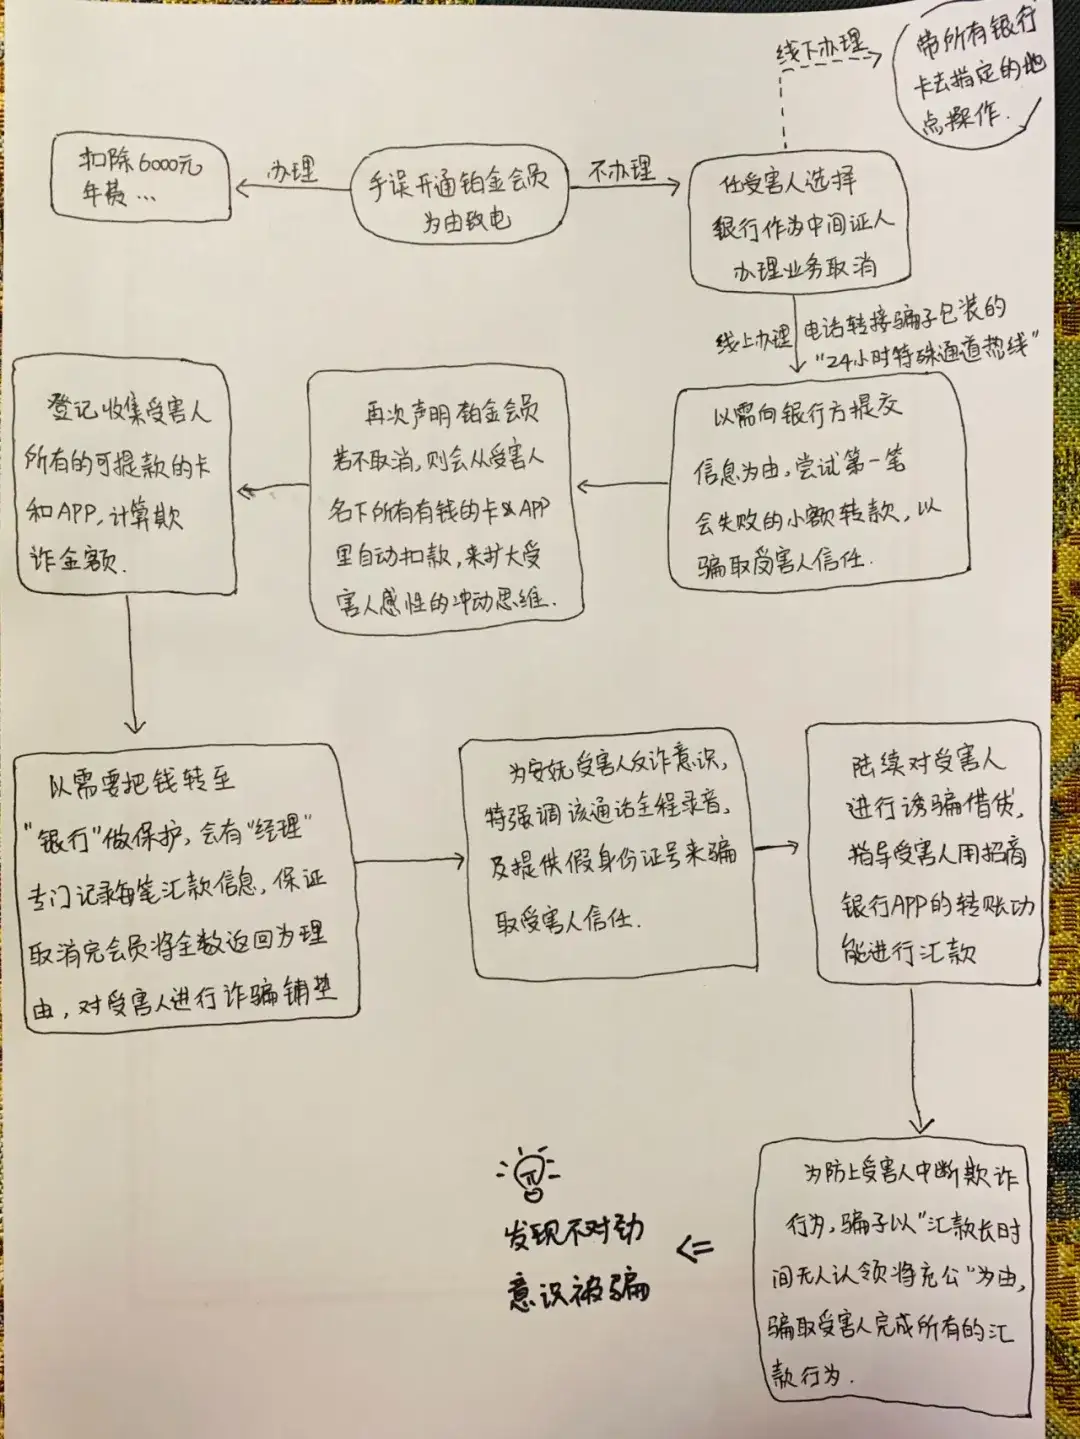 线下办理
带所有银行
卡去指定的地
点操作.
扣除6000元
年费...
办理
手误开通铂金会员
为由致电
不办理
任受害人选择
银行作为中间证人
办理业务取消
线上办理
电话转接骗子包装的
"24小时特殊通道热线"
以需向银行方提交
信息为由,尝试第一笔
会失败的小额转款,以
骗取受害人信任.
再次声明铂金会员
若不取消,则会从受害人
名下所有有钱的卡&APP
里自动扣款,来扩大受
害人感性的冲动思维.
登记收集受害人
所有的可提款的卡
和APP,计算欺
诈金额.
以需要把钱转至
"银行"做保护,会有"经理"
专门记录每笔汇款信息,保证
取消完会员将全数返回为理
由,对受害人进行诈骗铺垫
为安抚受害人反诈意识,
特强调该通话全程录音,
及提供假身份证号来骗
取受害人信任.
陆续对受害人
进行诱骗借贷,
指导受害人用招商
银行APP的转账功
能进行汇款
为防止受害人中断欺诈
行为,骗子以"汇款长时
间无人认领将充公"为由,
骗取受害人完成所有的汇
款行为.
发现不对劲
意识被骗